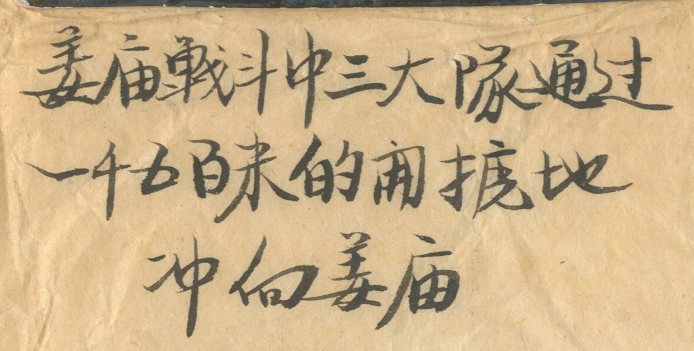 姜庙戰斗中三大隊通过
一千五百米的开擴地
冲向姜庙